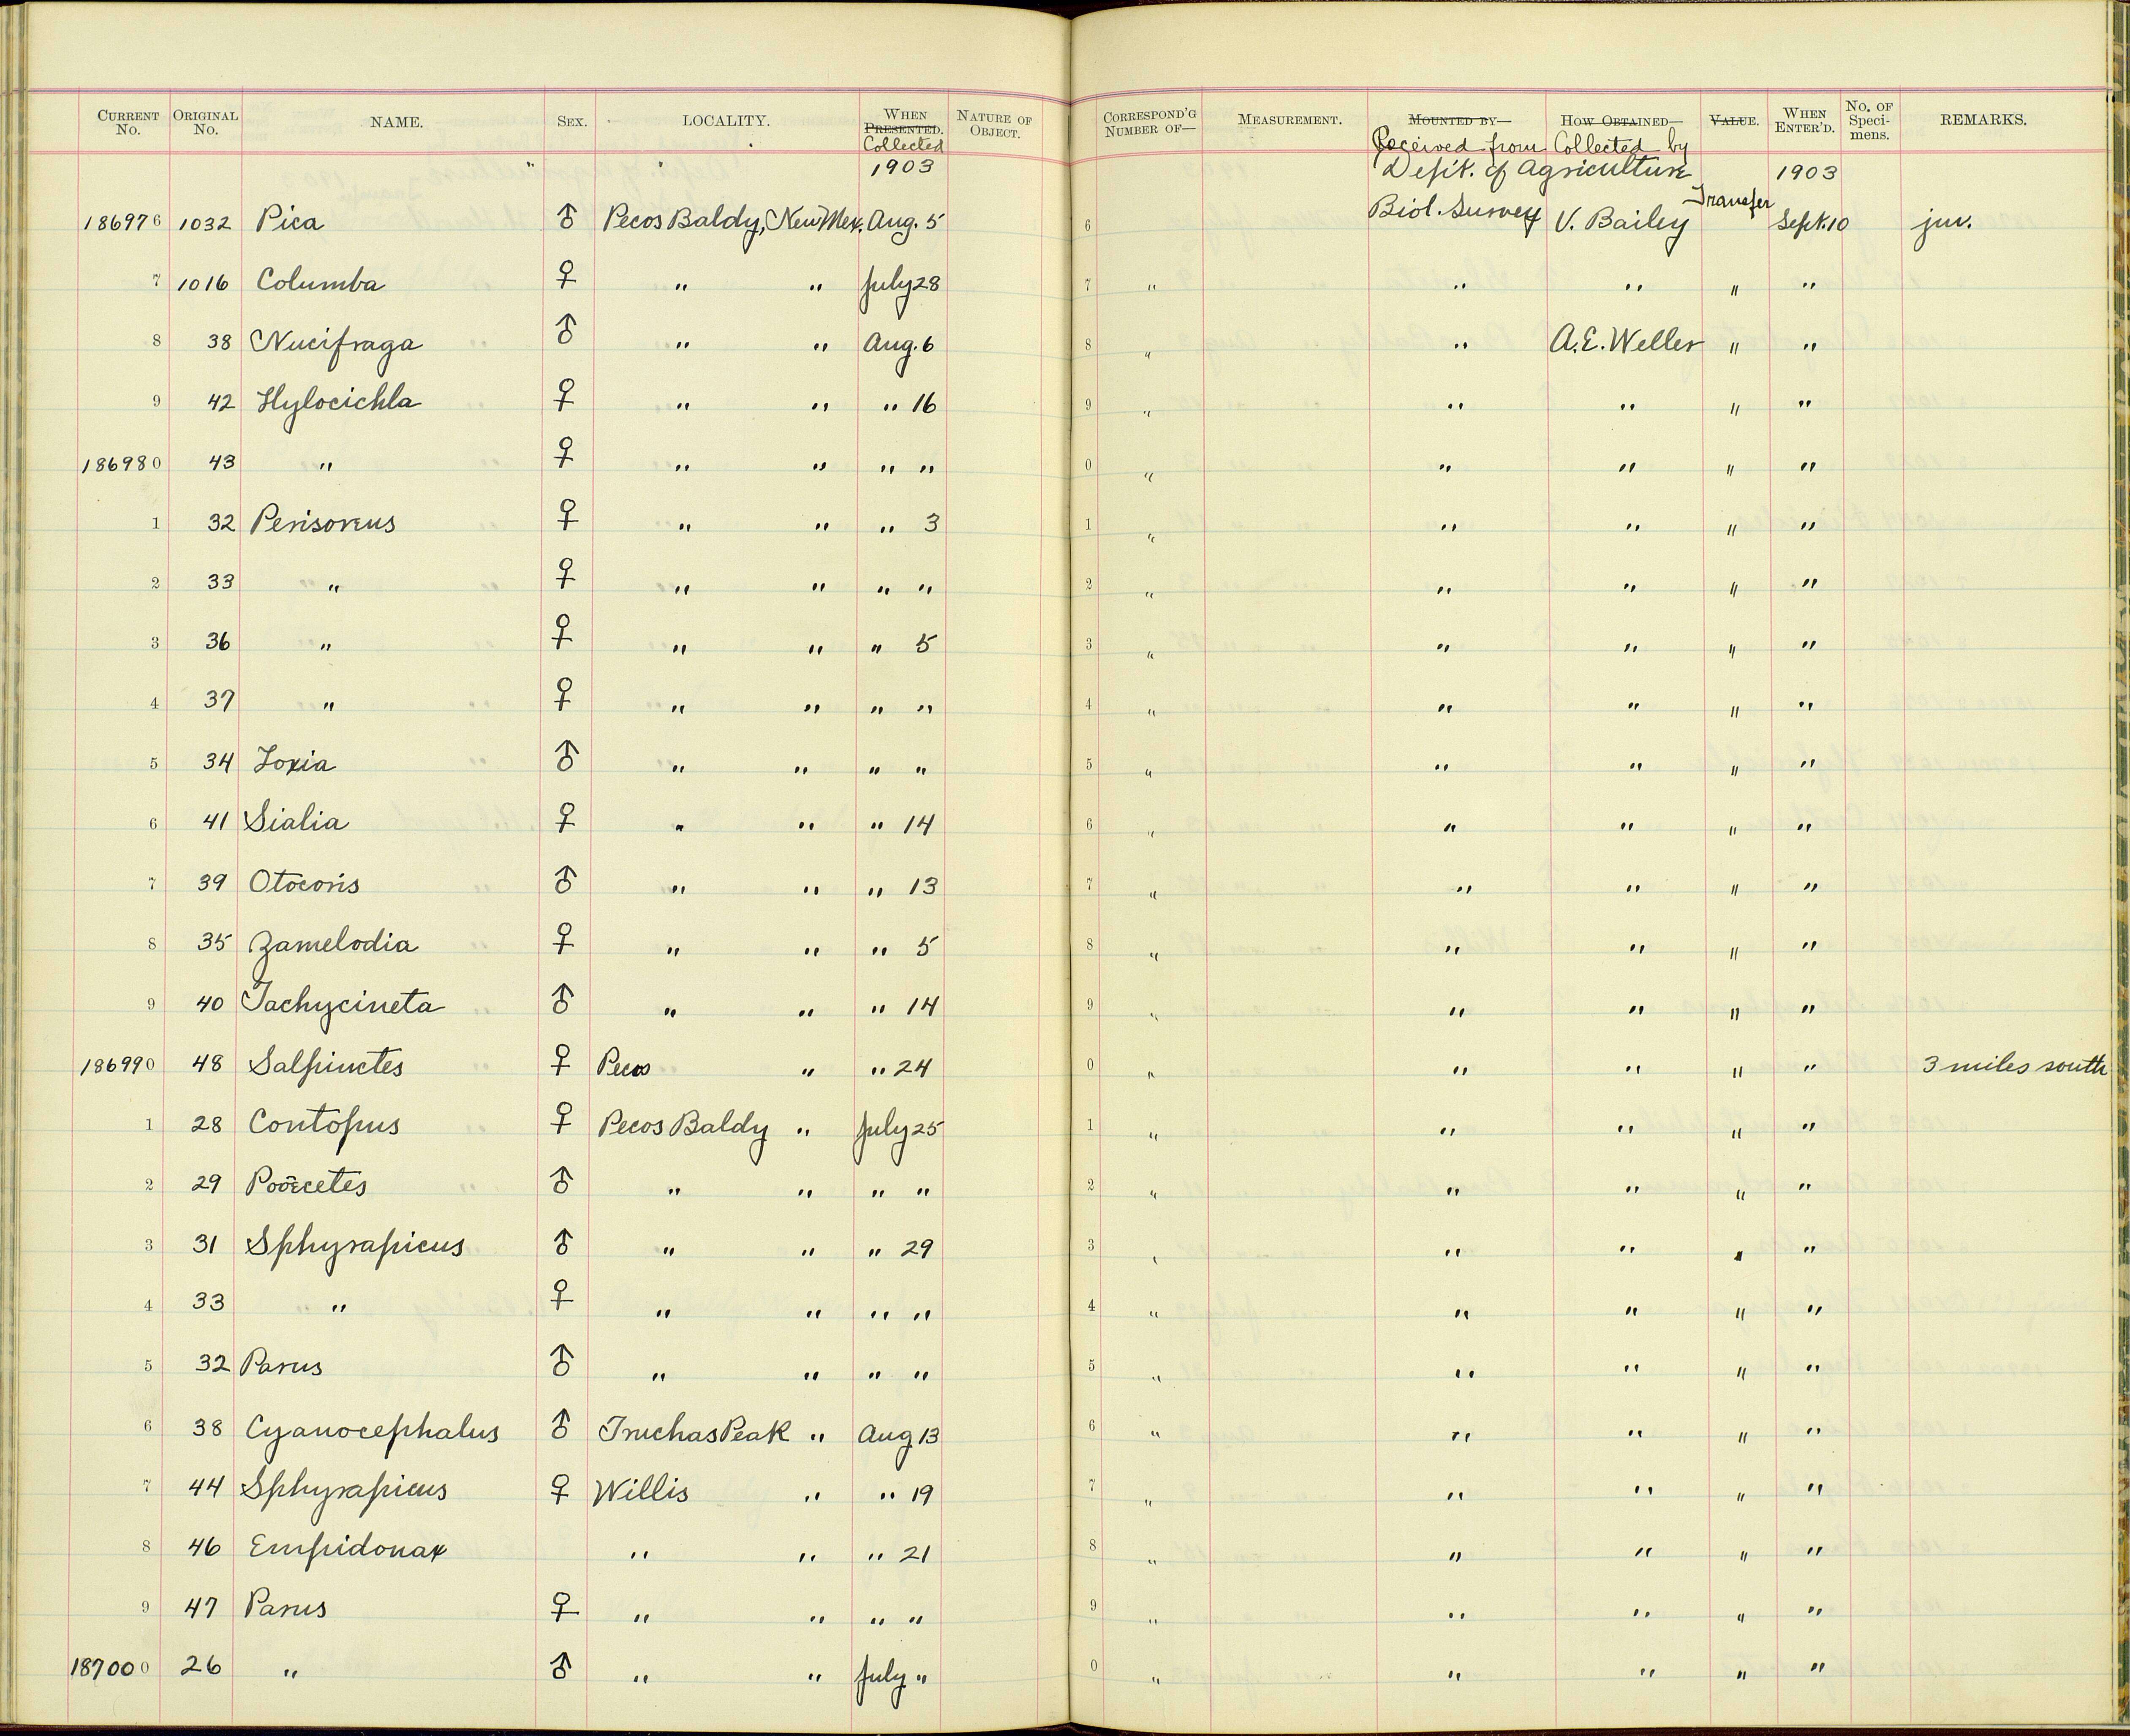 CURRENT No. ORIGINAL No. NAME. SEX. LOCALITY. WHEN PRESENTED. Collected NATURE OF OBJECT. CORRESPOND'G NUMBER OF— MEASUREMENT. MOUNTED BY— Received from HOW OBTAINED— Collected by VALUE. WHEN ENTER'D. No. OF Speci-mens. REMARKS.
" " 1903 Dept. of Agriculture 1903
186976 1032 Pica ♂ Pecos Baldy, New Mex. Aug. 5 6 Biol. Survey V. Bailey Transfer Sept. 10 juv.
7 1016 Columba ♀ " " July 28 7 " " " " "
8 38 Nucifraga ♂ " " Aug. 6 8 " " A.E. Weller " "
9 42 Hylocichla ♀ " " " 16 9 " " " " "
186980 43 " ♀ " " " " 0 " " " " "
1 32 Perisoreus ♀ " " " 3 1 " " " " "
2 33 " ♀ " " " " 2 " " " " "
3 36 " ♀ " " " 5 3 " " " " "
4 37 " ♀ " " " " 4 " " " " "
5 34 Loxia ♂ " " " " 5 " " " " "
6 41 Sialia ♀ " " " 14 6 " " " " "
7 39 Otocoris ♂ " " " 13 7 " " " " "
8 35 Zamelodia ♀ " " " 5 8 " " " " "
9 40 Tachycineta ♂ " " " 14 9 " " " " "
186990 48 Salpinctes ♀ Pecos " " 24 0 " " " " " 3 miles south
1 28 Contopus ♀ Pecos Baldy " July 25 1 " " " " "
2 29 Pooecetes ♂ " " " " 2 " " " " "
3 31 Sphyrapicus ♂ " " " 29 3 " " " " "
4 33 " ♀ " " " " 4 " " " " "
5 32 Parus ♂ " " " " 5 " " " " "
6 38 Cyanocephalus ♂ Truchas Peak " Aug 13 6 " " " " "
7 44 Sphyrapicus ♀ Willis " " 19 7 " " " " "
8 46 Empidonax " " " 21 8 " " " " "
9 47 Parus ♀ " " " " 9 " " " " "
187000 26 " ♂ " " July " 0 " " " " "